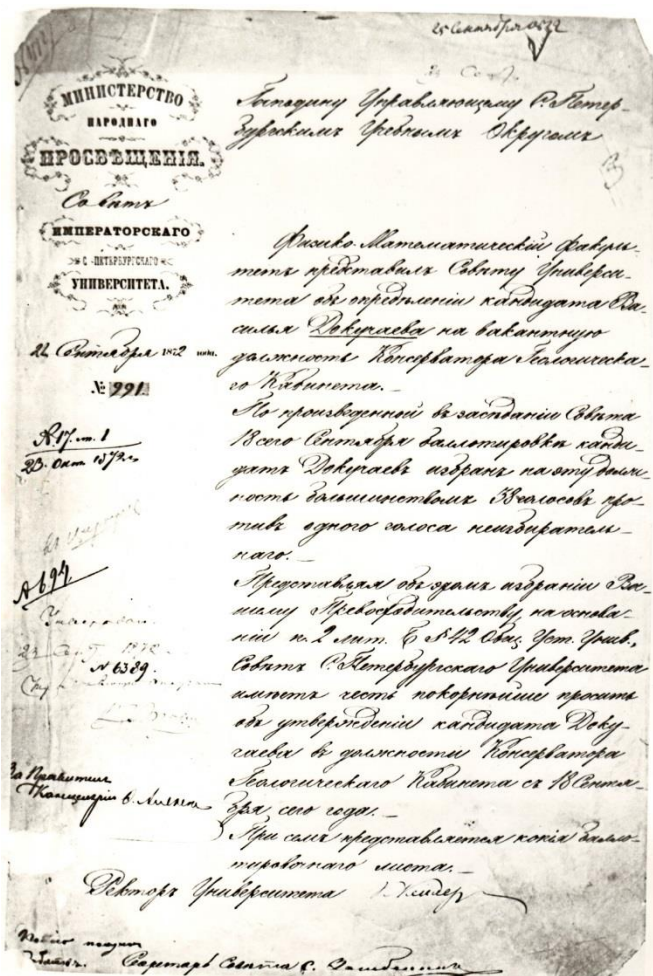 25 Сентября 1872
МИНИСТЕРСТВО
НАРОДНАГО
ПРОСВѢЩЕНІЯ.
Совѣтъ
ИМПЕРАТОРСКАГО
С.-ПЕТЕРБУРГСКАГО
УНИВЕРСИТЕТА.
22 Сентября 1872 года.
№ 991.
23 Окт 1872 г.
№ 6389.
За Правителя
Канцеляріи
Господину Управляющему С. Петер-
бургскимъ Учебнымъ Округомъ
3
Физико-Математическій факуль-
тетъ представилъ Совѣту Универси-
тета объ опредѣленіи кандидата Ва-
силья Докучаева на вакантную
должность Консерватора Геологическа-
го Кабинета.
По произведенной въ засѣданіи Совѣта
18 сего Сентября баллотировкѣ канди-
датъ Докучаевъ избранъ на эту долж-
ность большинствомъ 33 голосовъ про-
тивъ одного голоса неизбиратель-
наго.
Представляя объ этомъ избраніи Ва-
шему Превосходительству, на основа-
ніи п. 2 лит. Б § 42 Общ. Уст. Унив.,
Совѣтъ С. Петербургскаго Университета
имѣетъ честь покорнѣйше просить
объ утвержденіи кандидата Доку-
чаева въ должности Консерватора
Геологическаго Кабинета съ 18 Сентя-
бря сего года.
При семъ представляется копія балло-
тировочнаго листа.
Ректоръ Университета
Секретарь Совѣта